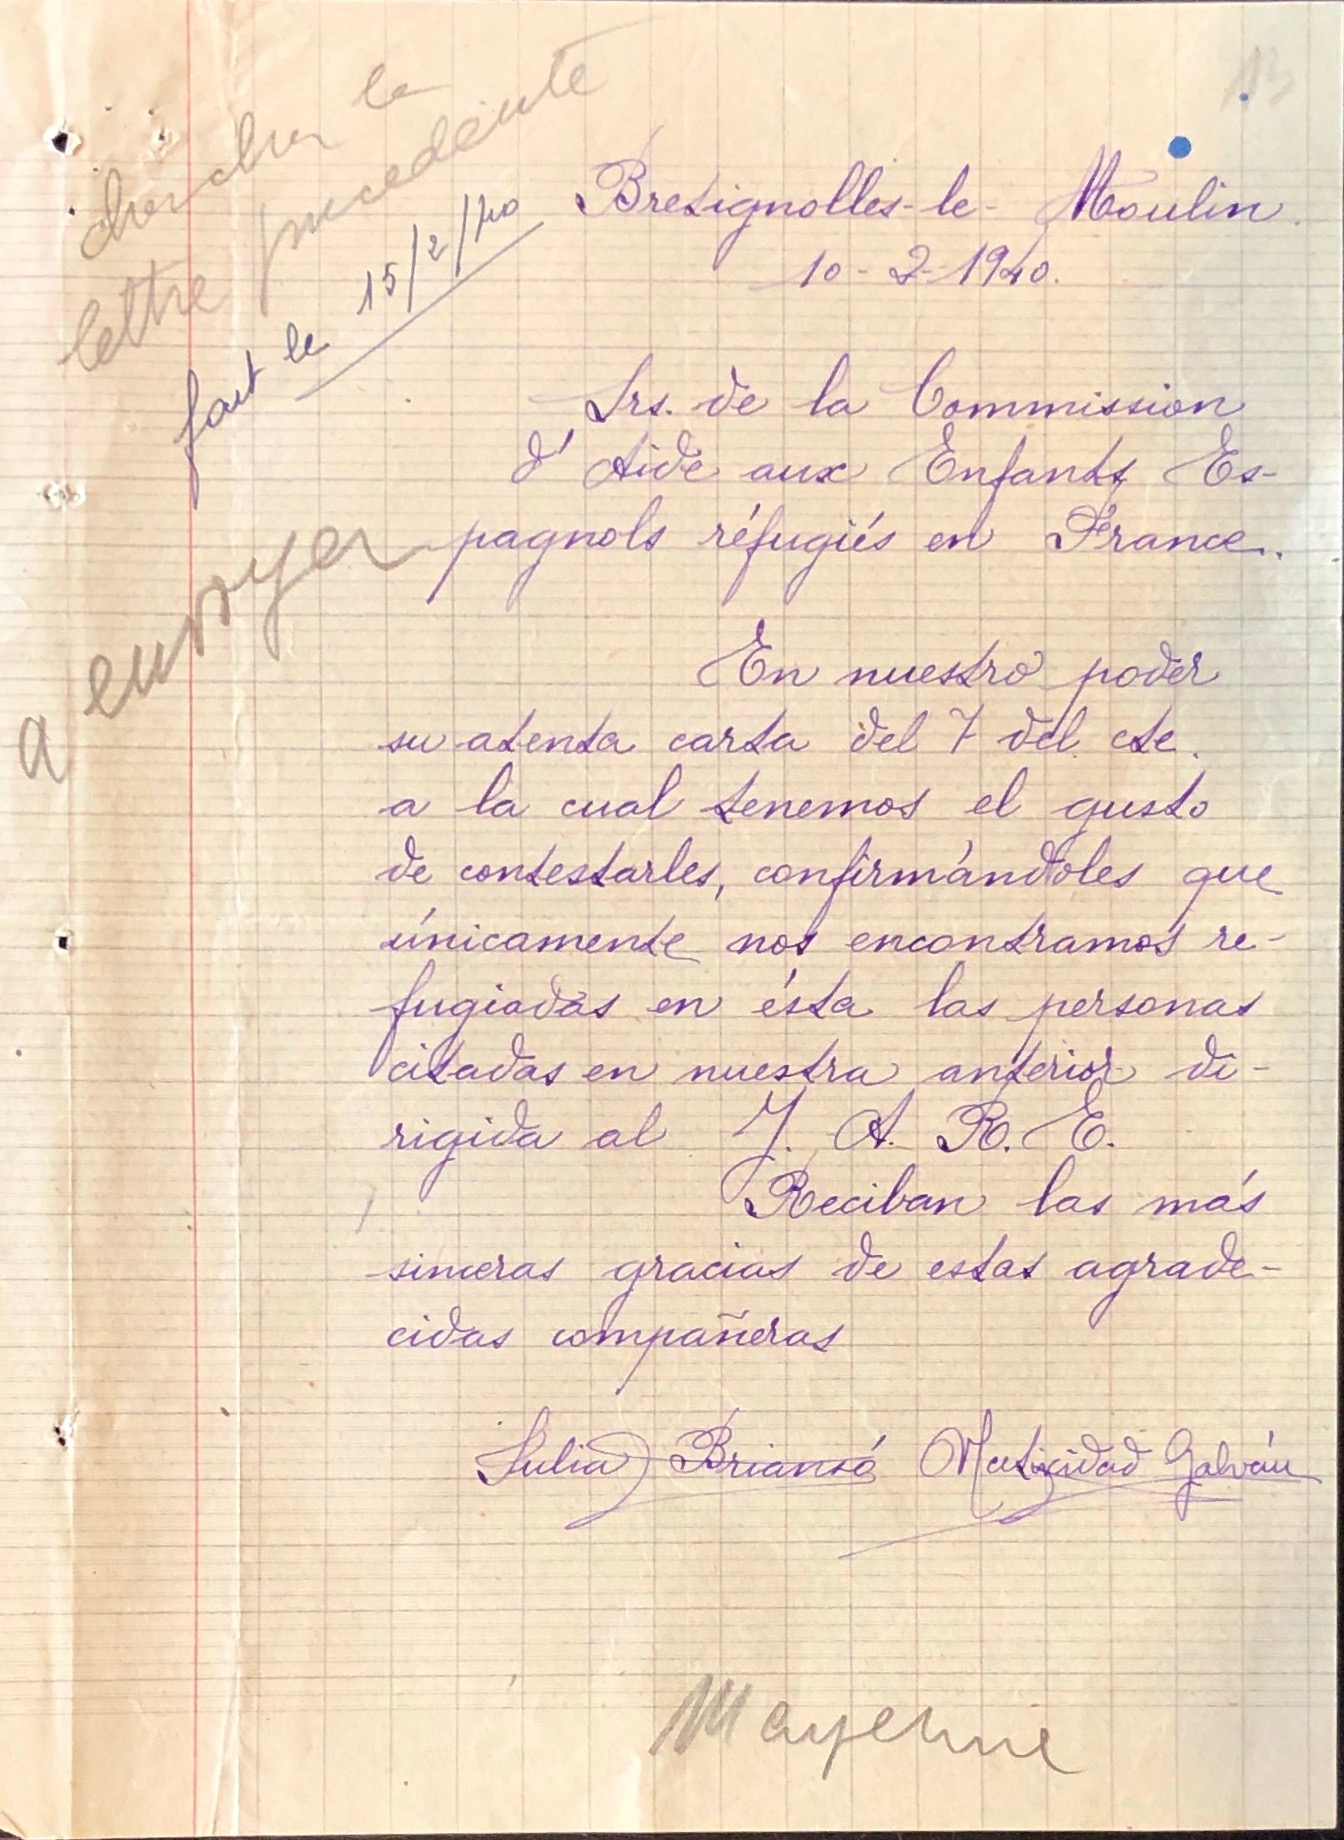 13
chercher la
lettre précédente
fait le 15/2/40
a envoyer
Bretignolles-le-Moulin.
10-2-1940.
Srs. de la Commission
d'Aide aux Enfants Es-
pagnols réfugiés en France.
En nuestro poder
su atenta carta del 7 del cte.
a la cual tenemos el gusto
de contestarles, confirmándoles que
únicamente nos encontramos re-
fugiadas en ésta las personas
citadas en nuestra anterior di-
rigida al J. A. R. E.
Reciban las más
sinceras gracias de estas agrade-
cidas compañeras
Julia Briansó Natividad Galván
Mayenne